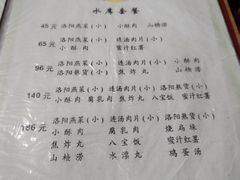 水席套餐
45元 洛阳燕菜(小) 小酥肉 山楂涝
65元 洛阳燕菜(小) 连汤肉片(小)
小酥肉 蜜汁红薯
96元 洛阳燕菜(小) 连汤肉片(小) 小酥肉
洛阳熬货(小) 焦炸丸 山楂涝
140元 洛阳燕菜(小) 连汤肉片(小) 洛阳熬货(小)
小酥肉 腐乳肉 八宝饭 蜜汁红薯
186元 洛阳燕菜(小) 连汤肉片(小) 洛阳熬货(小)
小酥肉 腐乳肉 烧乌珠
焦炸丸 八宝饭 蜜汁红薯
山楂涝 水漂丸 鸡蛋汤